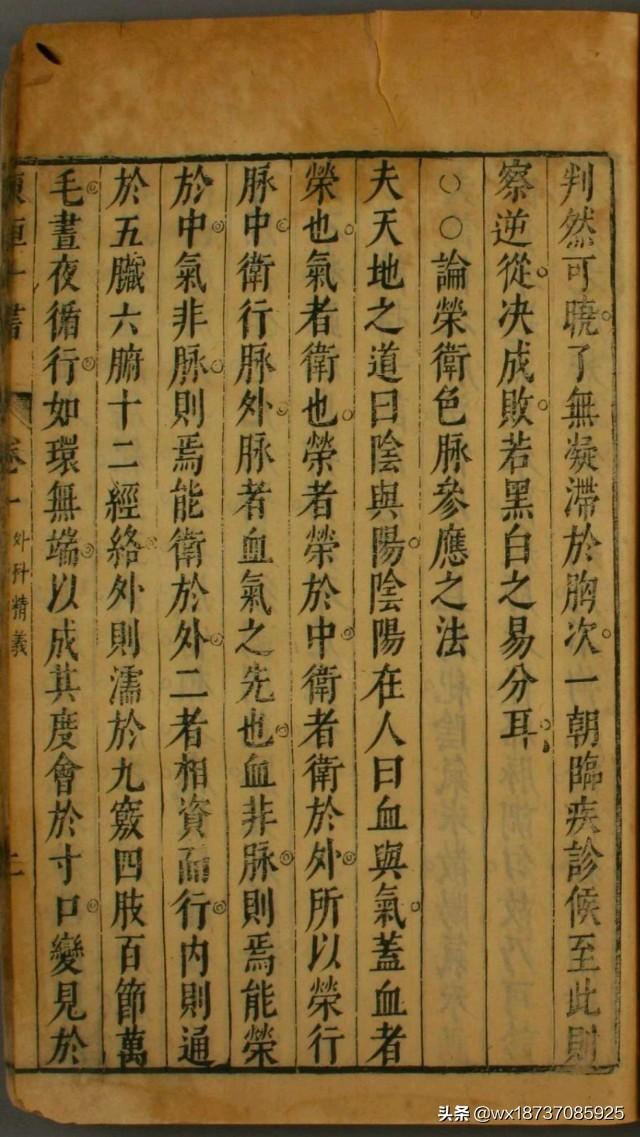 判然可曉了無凝滯於胸次一朝臨疾診候至此則
察逆從决成敗若黑白之易分耳
○○論榮衛色脉參應之法
夫天地之道曰陰與陽陰陽在人曰血與氣蓋血者
榮也氣者衛也榮者榮於中衛者衛於外所以榮行
脉中衛行脉外脉者血氣之先也血非脉則焉能榮
於中氣非脉則焉能衛於外二者相資而行内則通
於五臟六腑十二經絡外則濡於九竅四肢百節萬
毛晝夜循行如環無端以成其度會於寸口變見於
東垣十書 卷一 外科精義
頭条 @wx18737085925